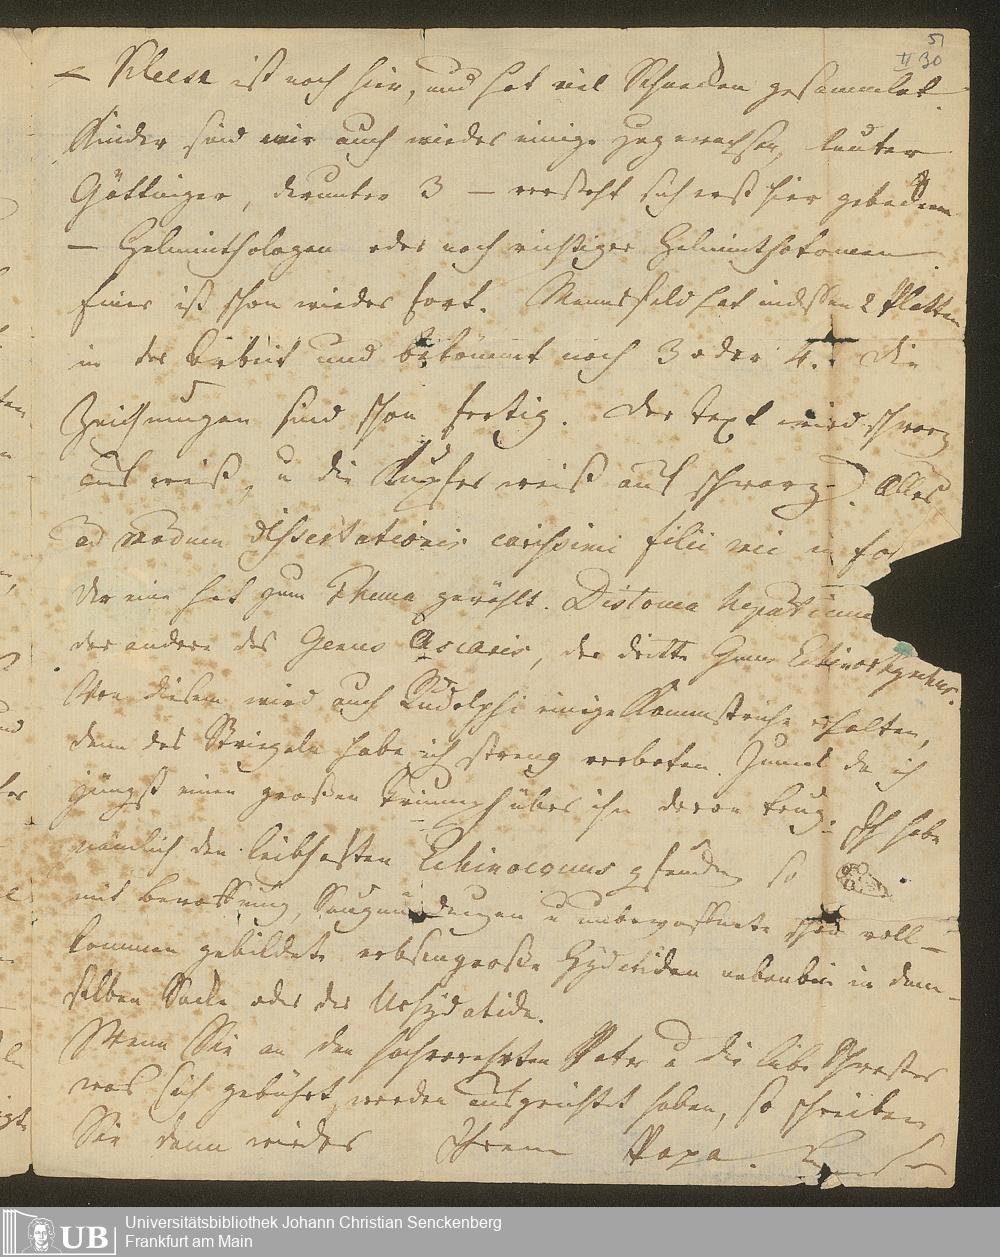 5
II 30
– Kleese ist noch hier, und hat viel Schnecken gesammelt.
Kinder sind mir auch wieder einige zugewachsen, lauter
Göttinger, darunter 3 – versteht sich erst hier gebackene
– Helminthologen oder noch richtiger Helminthotomen
Einer ist schon wieder fort. Mannsfeld hat indessen 2 Platten
in der Arbeit und bekömmt noch 3 oder 4. die
Zeichnungen sind schon fertig. der Text wird schwarz
auf weiß, u die Kupfer weiß auf schwarz. Alles
ad modum dissertationis carissimi filii mei in
der eine hat zum Thema gewählt. Distoma hepaticum
der andere das Genus Ascaris, der dritte Genus Echinorhynchus.
Von diesem wird auch Rudolphi einige erhalten,
denn das habe ich streng verboten. Zumal da ich
jüngst einen großen Triumph über ihn davon trug. Ich habe
nämlich den leibhaften Echinococcus gefunden so
mit Bewaffnung, Saugmündungen u unbewaffnete voll-
kommen gebildete erbsengroße Hydatiden nebenbei in dem-
selben Sacke oder der Urhydatide.
Wenn Sie an den hochverehrten Vater u die liebe Schwester
was sich gebührt, werden ausgerichtet haben, so schreiben
Sie dann wieder Ihrem Papa.
UB
Universitätsbibliothek Johann Christian Senckenberg
Frankfurt am Main